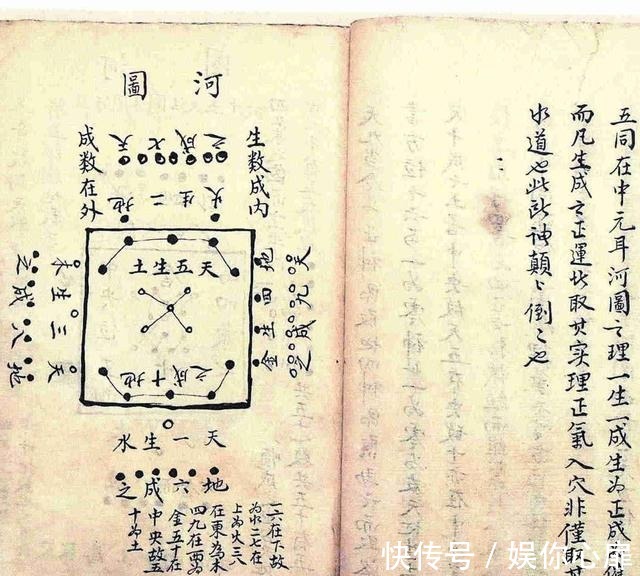 五同在中元耳河圖之理一生一成生為正成
而凡生成之正運此取其实理正氣入穴非僅取其
水道也此所神顛〻倒〻也
河圖
生数成内
成数在外
天七成之
地二生火
天五生土
地十成之
地四生金
天九成之
天三生木
地八成之
天一生水
地六成之
一六在下故
為水二七在
上為火三八
在東為木
四九在西為
金五十在
中央故五
十為土
快传号 / 娱你心扉